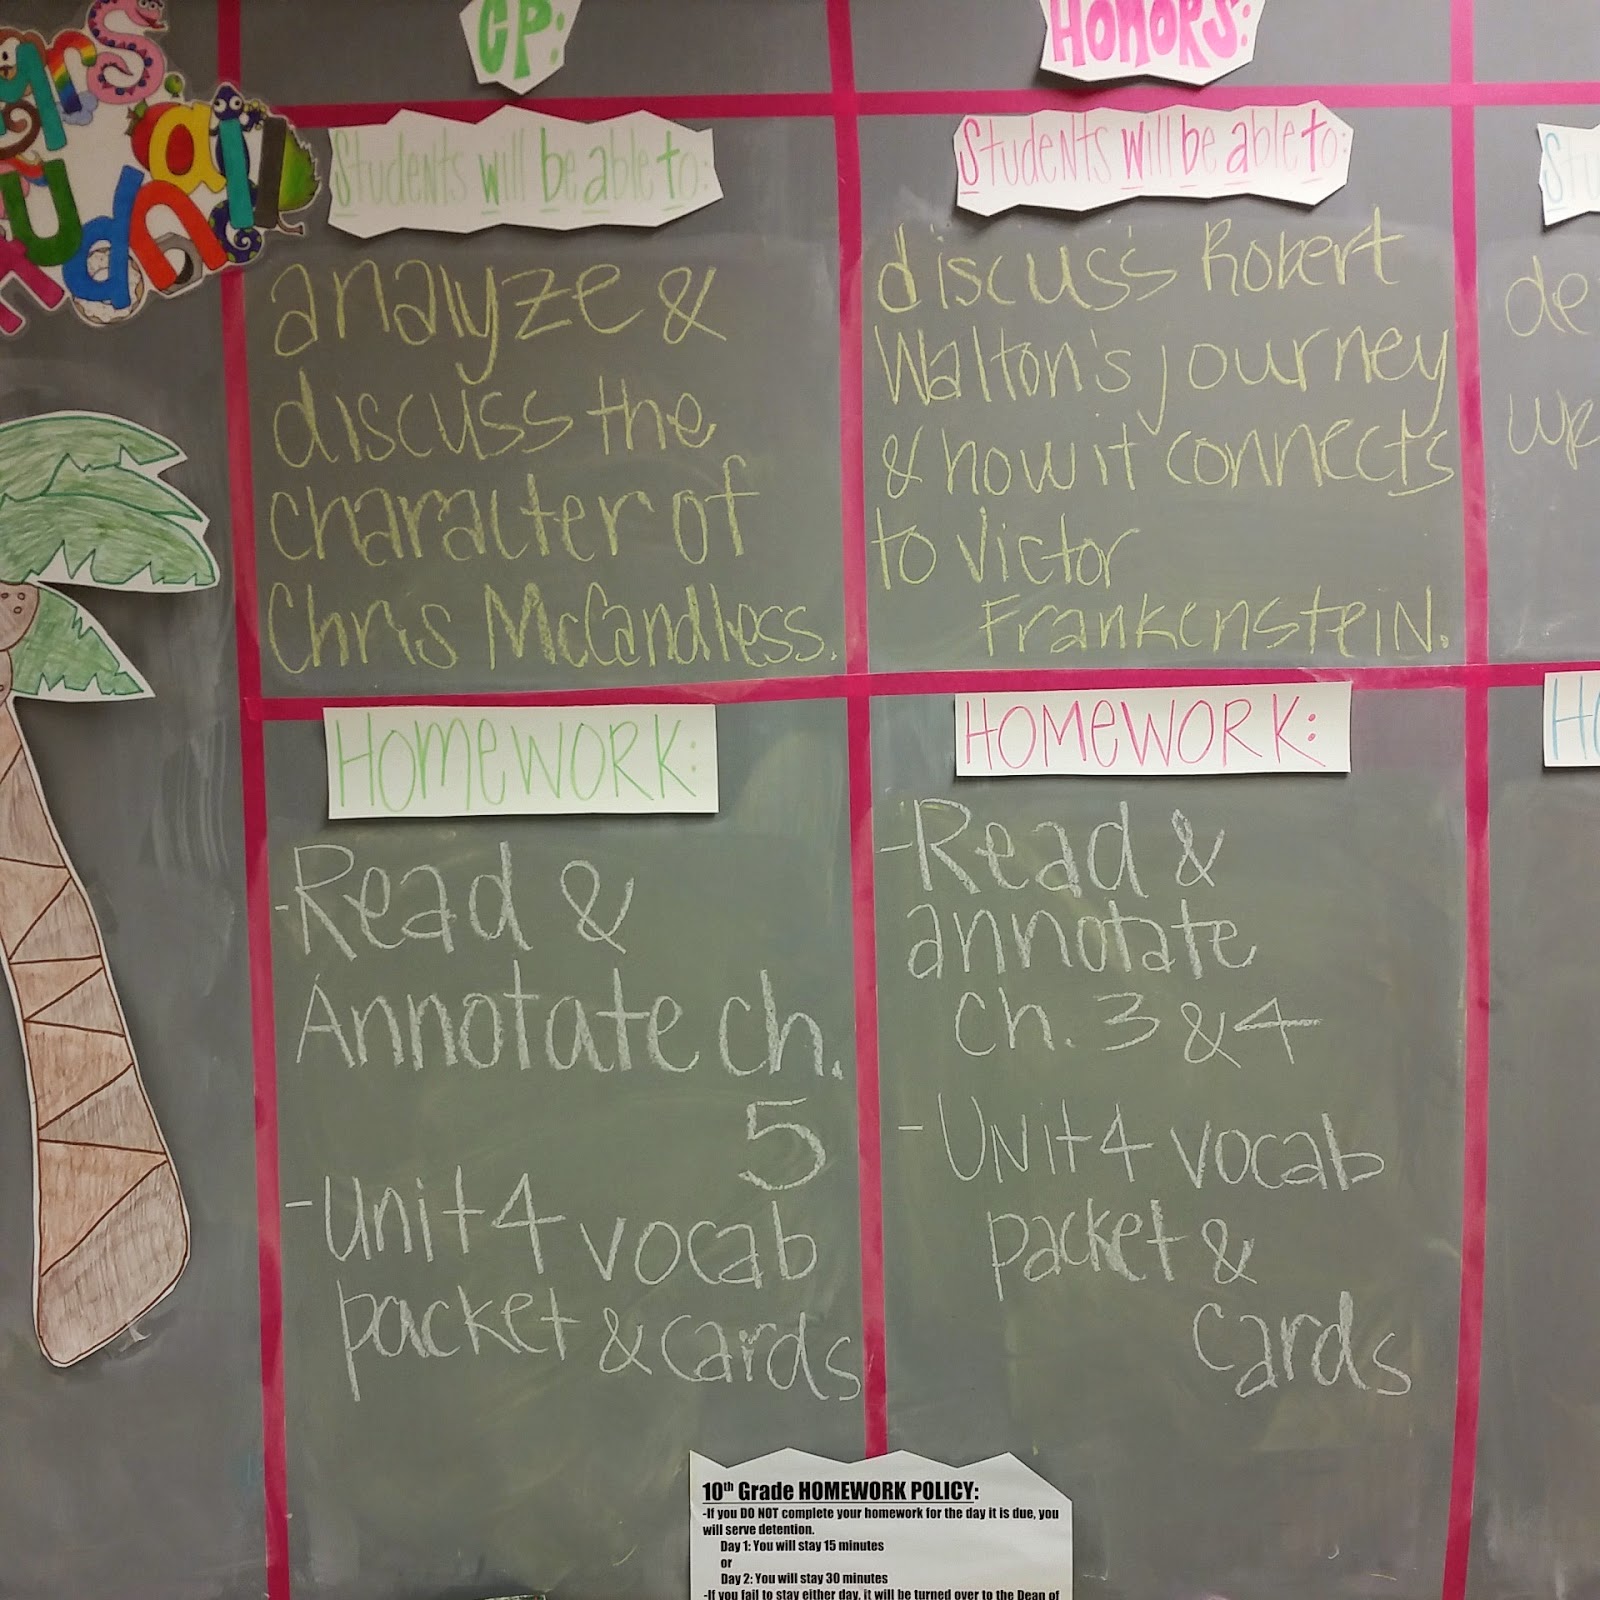 Mrs.
CP:
Students will be able to:
analyze &
discuss the
character of
Chris McCandless.
HOMEWORK:
-Read &
Annotate ch.
5
-Unit 4 vocab
packet & cards
HONORS:
Students will be able to:
discuss Robert
Walton's journey
& how it connects
to Victor
Frankenstein.
HOMEWORK:
-Read &
annotate
ch. 3 & 4
- Unit 4 vocab
packet &
cards
10th Grade HOMEWORK POLICY:
-If you DO NOT complete your homework for the day it is due, you
will serve detention.
Day 1: You will stay 15 minutes
or
Day 2: You will stay 30 minutes
-If you fail to stay either day, it will be turned over to the Dean of